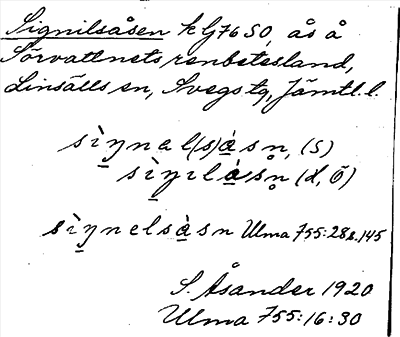 Signilsåsen kG76 SO, ås å
Sörvattnets renbetesland,
Linsälls sn, Svegs tg, Jämtl. l.
sìnel(s)ås̀n, (S)
sìnilås̀n (d, Ö)
sìnelsås̀n Ulma 755:28 s. 145
S. Åsander 1920
Ulma 755:16:30